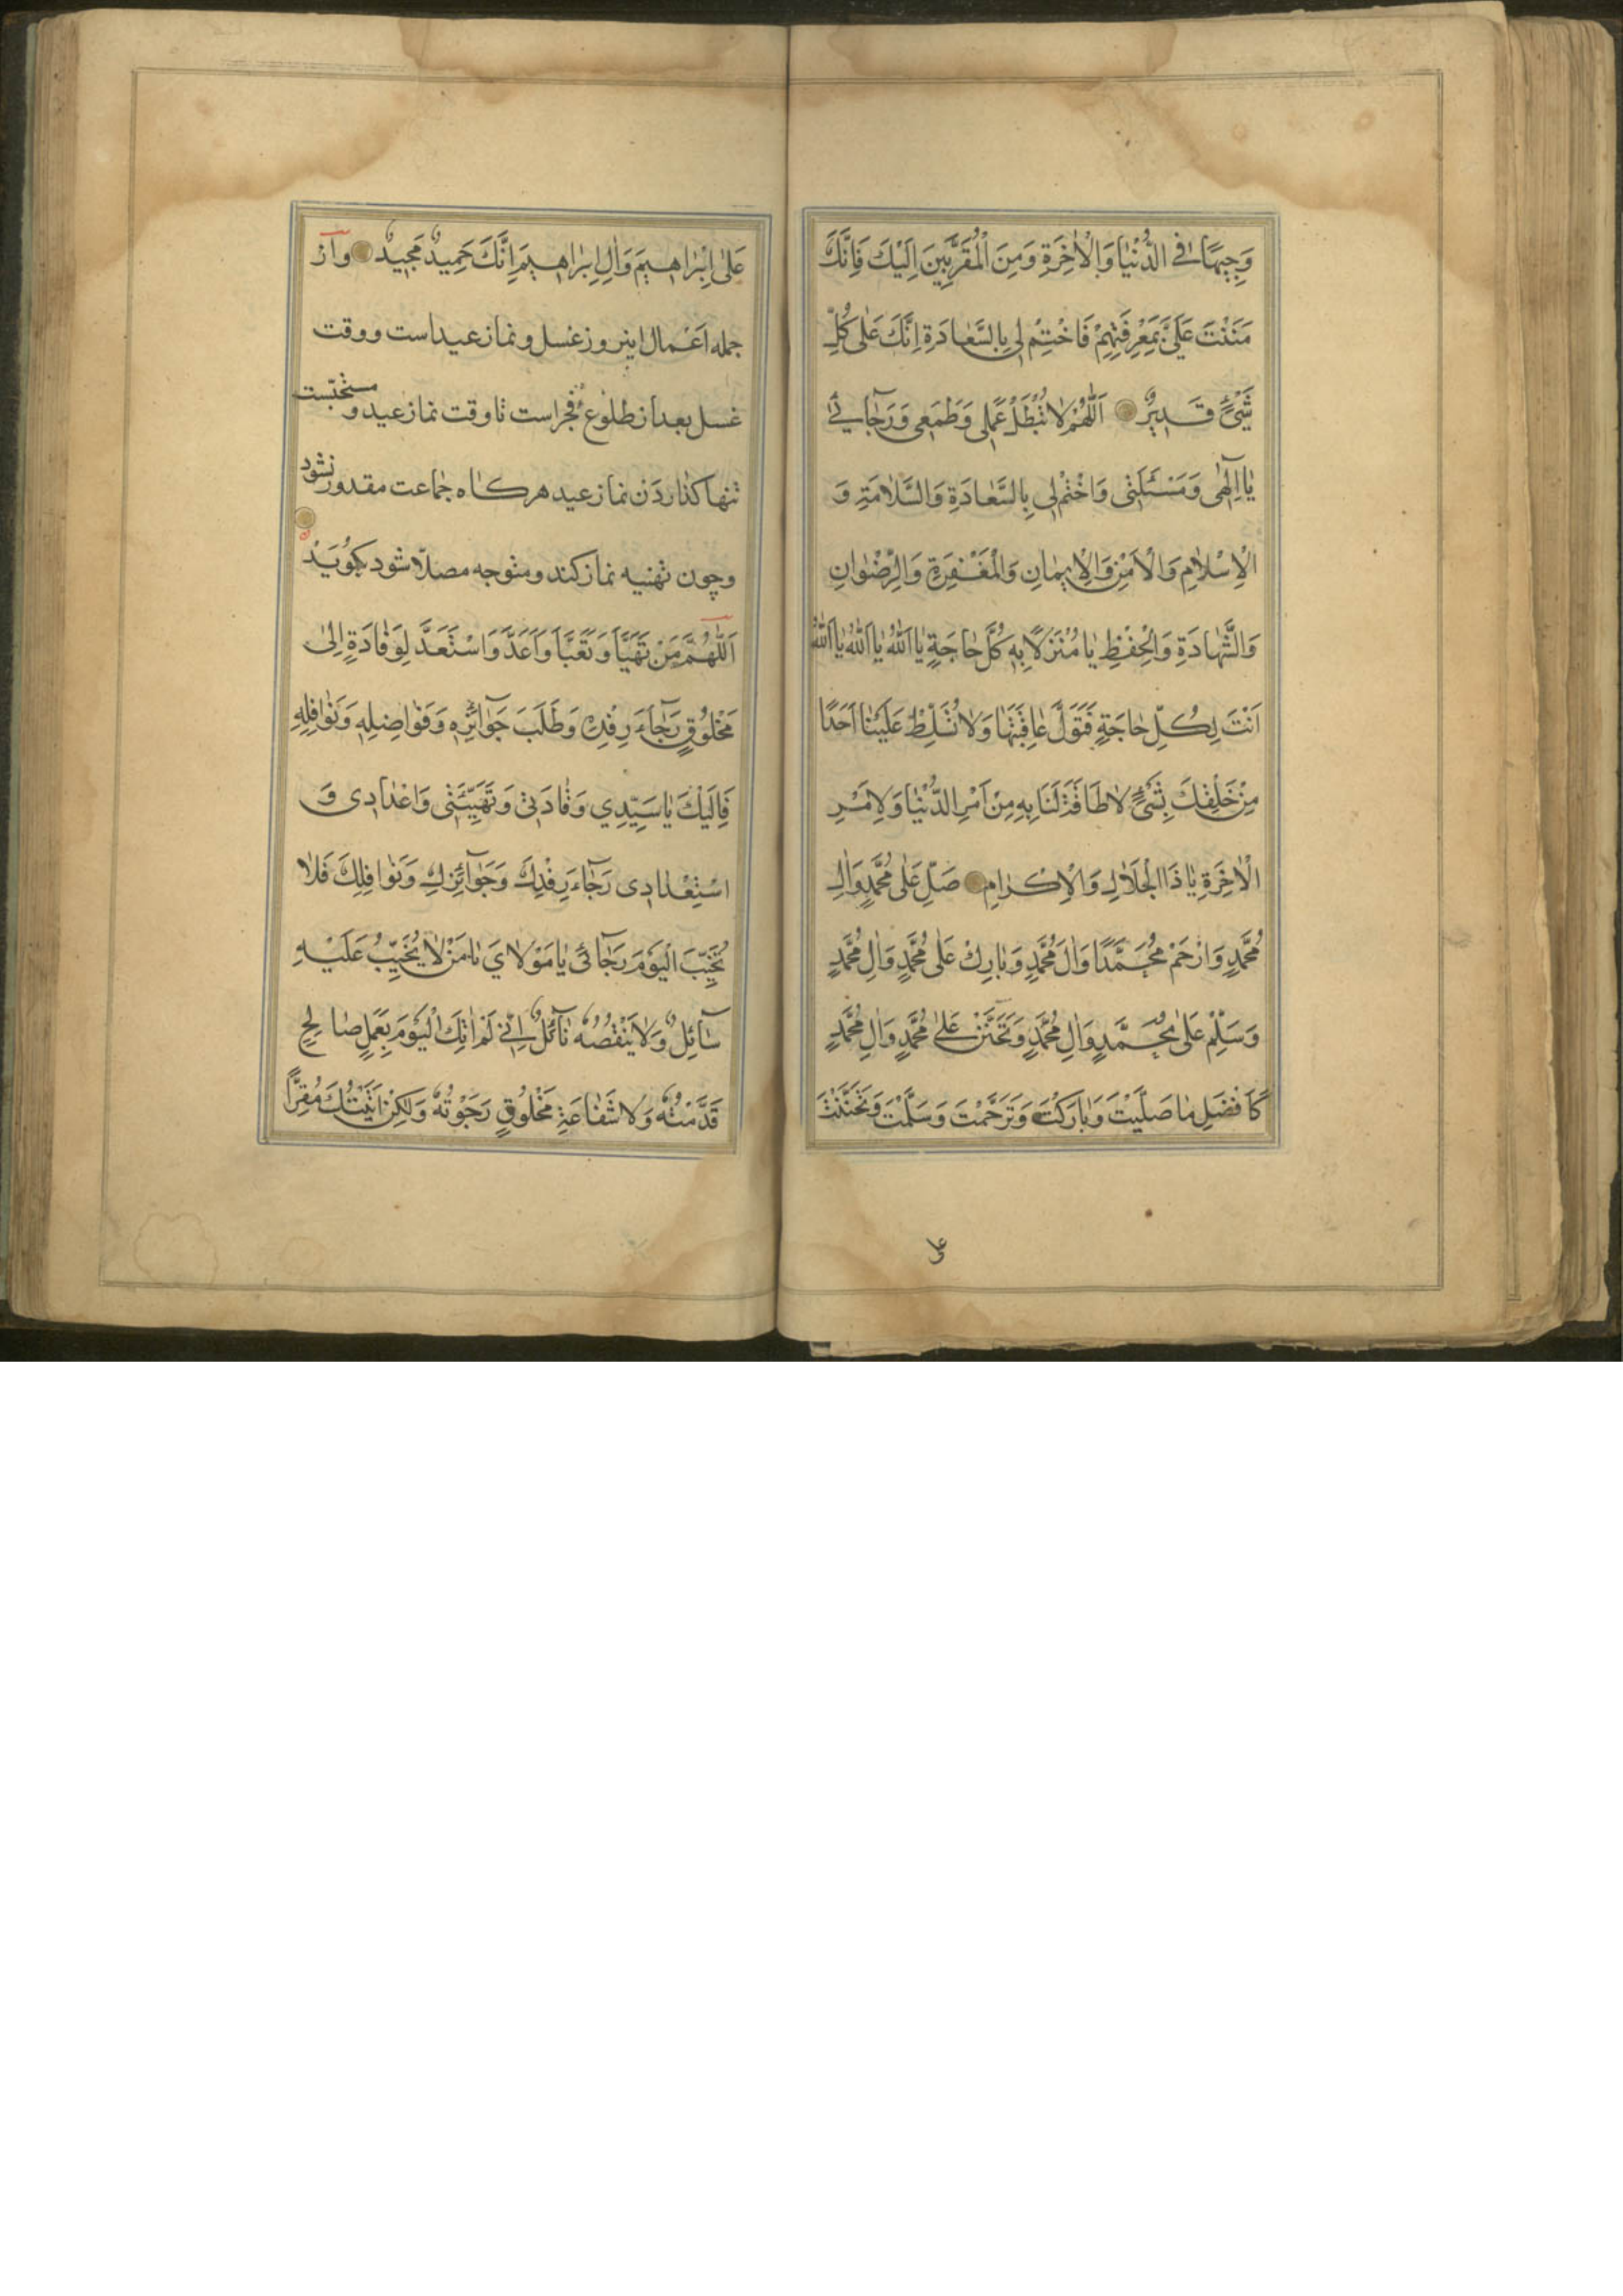 وَجِيهًا فِي الدُّنْيَا وَالْاٰخِرَةِ وَمِنَ الْمُقَرَّبِينَ اِلَيْكَ فَاِنَّكَ
مَنَنْتَ عَلَيَّ بِمَعْرِفَتِهِمْ فَاخْتِمْ لِي بِالسَّعَادَةِ اِنَّكَ عَلٰى كُلِّ
شَيْءٍ قَدِيرٌ اَللّٰهُمَّ لَا تُبْطِلْ عَمَلِي وَطَمَعِي وَرَجَآئِي
يَا اِلٰهِي وَمَسْئَلَتِي وَاخْتِمْ لِي بِالسَّعَادَةِ وَالسَّلَامَةِ وَ
الْاِسْلَامِ وَالْاَمْنِ وَالْاِيمَانِ وَالْمَغْفِرَةِ وَالرِّضْوَانِ
وَالشَّهَادَةِ وَالْحِفْظِ يَا مُنْزَلًا بِهِ كُلُّ حَاجَةٍ يَا اَللّٰهُ يَا اَللّٰهُ يَا اَللّٰهُ
اَنْتَ لِكُلِّ حَاجَةٍ فَتَوَلَّ عَاقِبَتَهَا وَلَا تُسَلِّطْ عَلَيْنَا اَحَدًا
مِنْ خَلْقِكَ بِشَيْءٍ لَا طَاقَةَ لَنَا بِهِ مِنْ اَمْرِ الدُّنْيَا وَلِاَمْرِ
الْاٰخِرَةِ يَا ذَا الْجَلَالِ وَالْاِكْرَامِ صَلِّ عَلٰى مُحَمَّدٍ وَاٰلِ
مُحَمَّدٍ وَارْحَمْ مُحَمَّدًا وَاٰلَ مُحَمَّدٍ وَبَارِكْ عَلٰى مُحَمَّدٍ وَاٰلِ مُحَمَّدٍ
وَسَلِّمْ عَلٰى مُحَمَّدٍ وَاٰلِ مُحَمَّدٍ وَتَحَنَّنْ عَلٰى مُحَمَّدٍ وَاٰلِ مُحَمَّدٍ
كَاَفْضَلِ مَا صَلَّيْتَ وَبَارَكْتَ وَتَرَحَّمْتَ وَسَلَّمْتَ وَتَحَنَّنْتَ
على
عَلٰى اِبْرَاهِيمَ وَاٰلِ اِبْرَاهِيمَ اِنَّكَ حَمِيدٌ مَجِيدٌ وَاَز
جمله اَعْمال اينروز غسل و نماز عيداست و وقت
غسل بعد از طلوع فجراست تا وقت نماز عيد و مستحبّست
تنها كذاردن نماز عيد هركاه جماعت مقدور نشود
و چون تهنيه نماز كند و متوجه مصلّا شود بكويَدْ
اَللّٰهُمَّ مَنْ تَهَيَّاَ وَتَعَبَّاَ وَاَعَدَّ وَاسْتَعَدَّ لِوَفَادَةٍ اِلٰى
مَخْلُوقٍ رَجَآءَ رِفْدِهِ وَطَلَبَ جَوَآئِزِهِ وَفَوَاضِلِهِ وَنَوَافِلِهِ
فَاِلَيْكَ يَا سَيِّدِي وَفَادَتِي وَتَهْيِئَتِي وَاعْدَادِي وَ
اسْتِعْدَادِي رَجَآءَ رِفْدِكَ وَجَوَآئِزِكَ وَنَوَافِلِكَ فَلَا
تُخَيِّبِ الْيَوْمَ رَجَآئِي يَا مَوْلَايَ يَا مَنْ لَا يُخَيِّبُ عَلَيْهِ
سَآئِلٌ وَلَا يَنْقُصُهُ نَآئِلٌ اِنِّي لَمْ اٰتِكَ الْيَوْمَ بِعَمَلٍ صَالِحٍ
قَدَّمْتُهُ وَلَا شَفَاعَةِ مَخْلُوقٍ رَجَوْتُهُ وَلٰكِنْ اَتَيْتُكَ مُقِرًّا